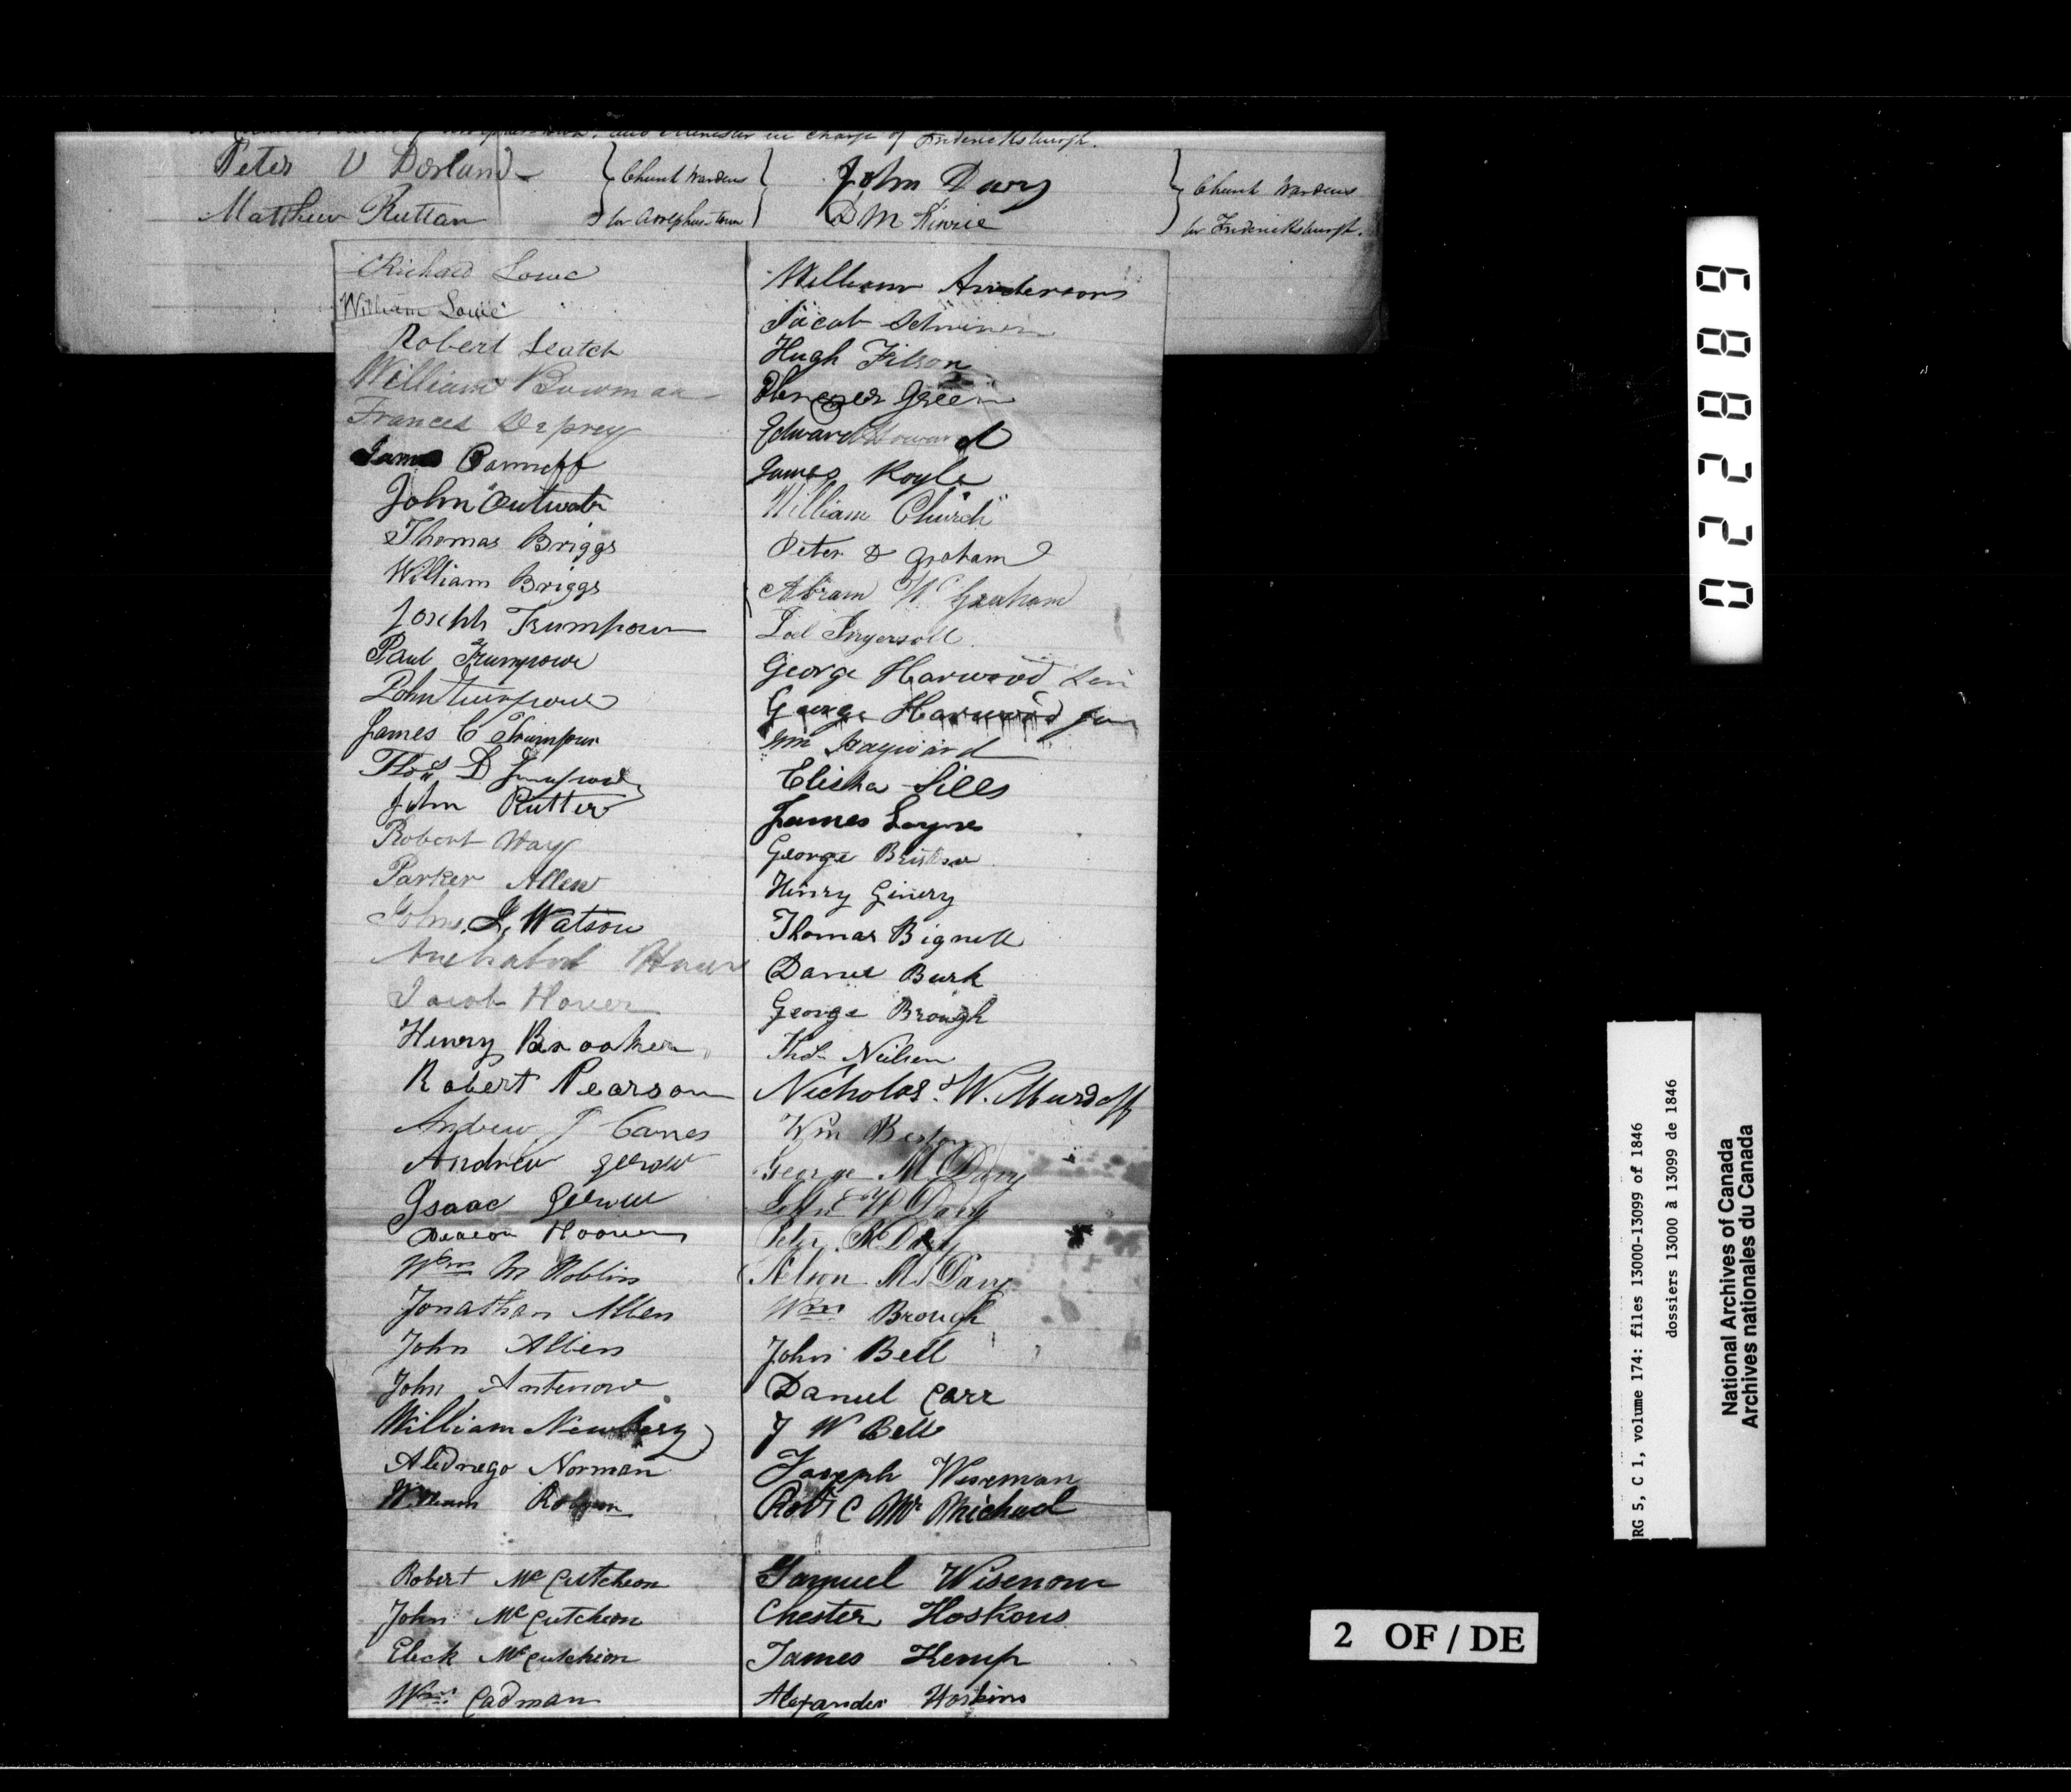 and Minister in charge of Fredericksburgh.
Peter V Dorland
Matthew Ruttan
Church Wardens
for Adolphus-town
John Davy
D M Kinnie
Church Wardens
for Fredericksburgh.
Richard Lowe
William Lowe
Robert Leatch
William Bowman
Frances Deprey
James
John Outwater
Thomas Briggs
William Briggs
Joseph Trumpour
Paul Trumpour
John Trumpour
James C Trumpour
Thos D Trumpour
John Rutter
Robert Way
Parker Allen
John J. Watson
Jacob Hover
Henry Brooker
Robert Pearson
Andrew J Carnes
Andrew Gerow
Isaac Gerow
Hoover
Wm M Roblin
Jonathan Allen
John Allen
John
William Newbery
Abednego Norman
William
William Anderson
Jacob
Hugh Filson
Ebenezer Green
Edward Howard
James Royle
William Church
Peter D Graham
Abram W Graham
Ingersoll
George Harwood Sen
George Harwood Jun
Wm Hayward
Elisha Sills
James Loynes
George Bristow
Henry Ginery
Thomas Bignell
Daniel Burk
George Brough
Thos Neilson
Nicholas. W. Murdoff
Wm
George M Davy
John W Davy
Peter R Davy
Nelson M Davy
Wm Brough
John Bell
Daniel Carr
J W Bell
Joseph Wiseman
Robt C McMichael
Robert McCutcheon
John McCutcheon
Eleck McCutchion
Wm. Cadman
Samuel Wisenow
Chester Hoskons
James Kemp
Alexander Hoskins
022889
RG 5, C 1, volume 174: files 13000-13099 of 1846
dossiers 13000 à 13099 de 1846
National Archives of Canada
Archives nationales du Canada
2 OF / DE